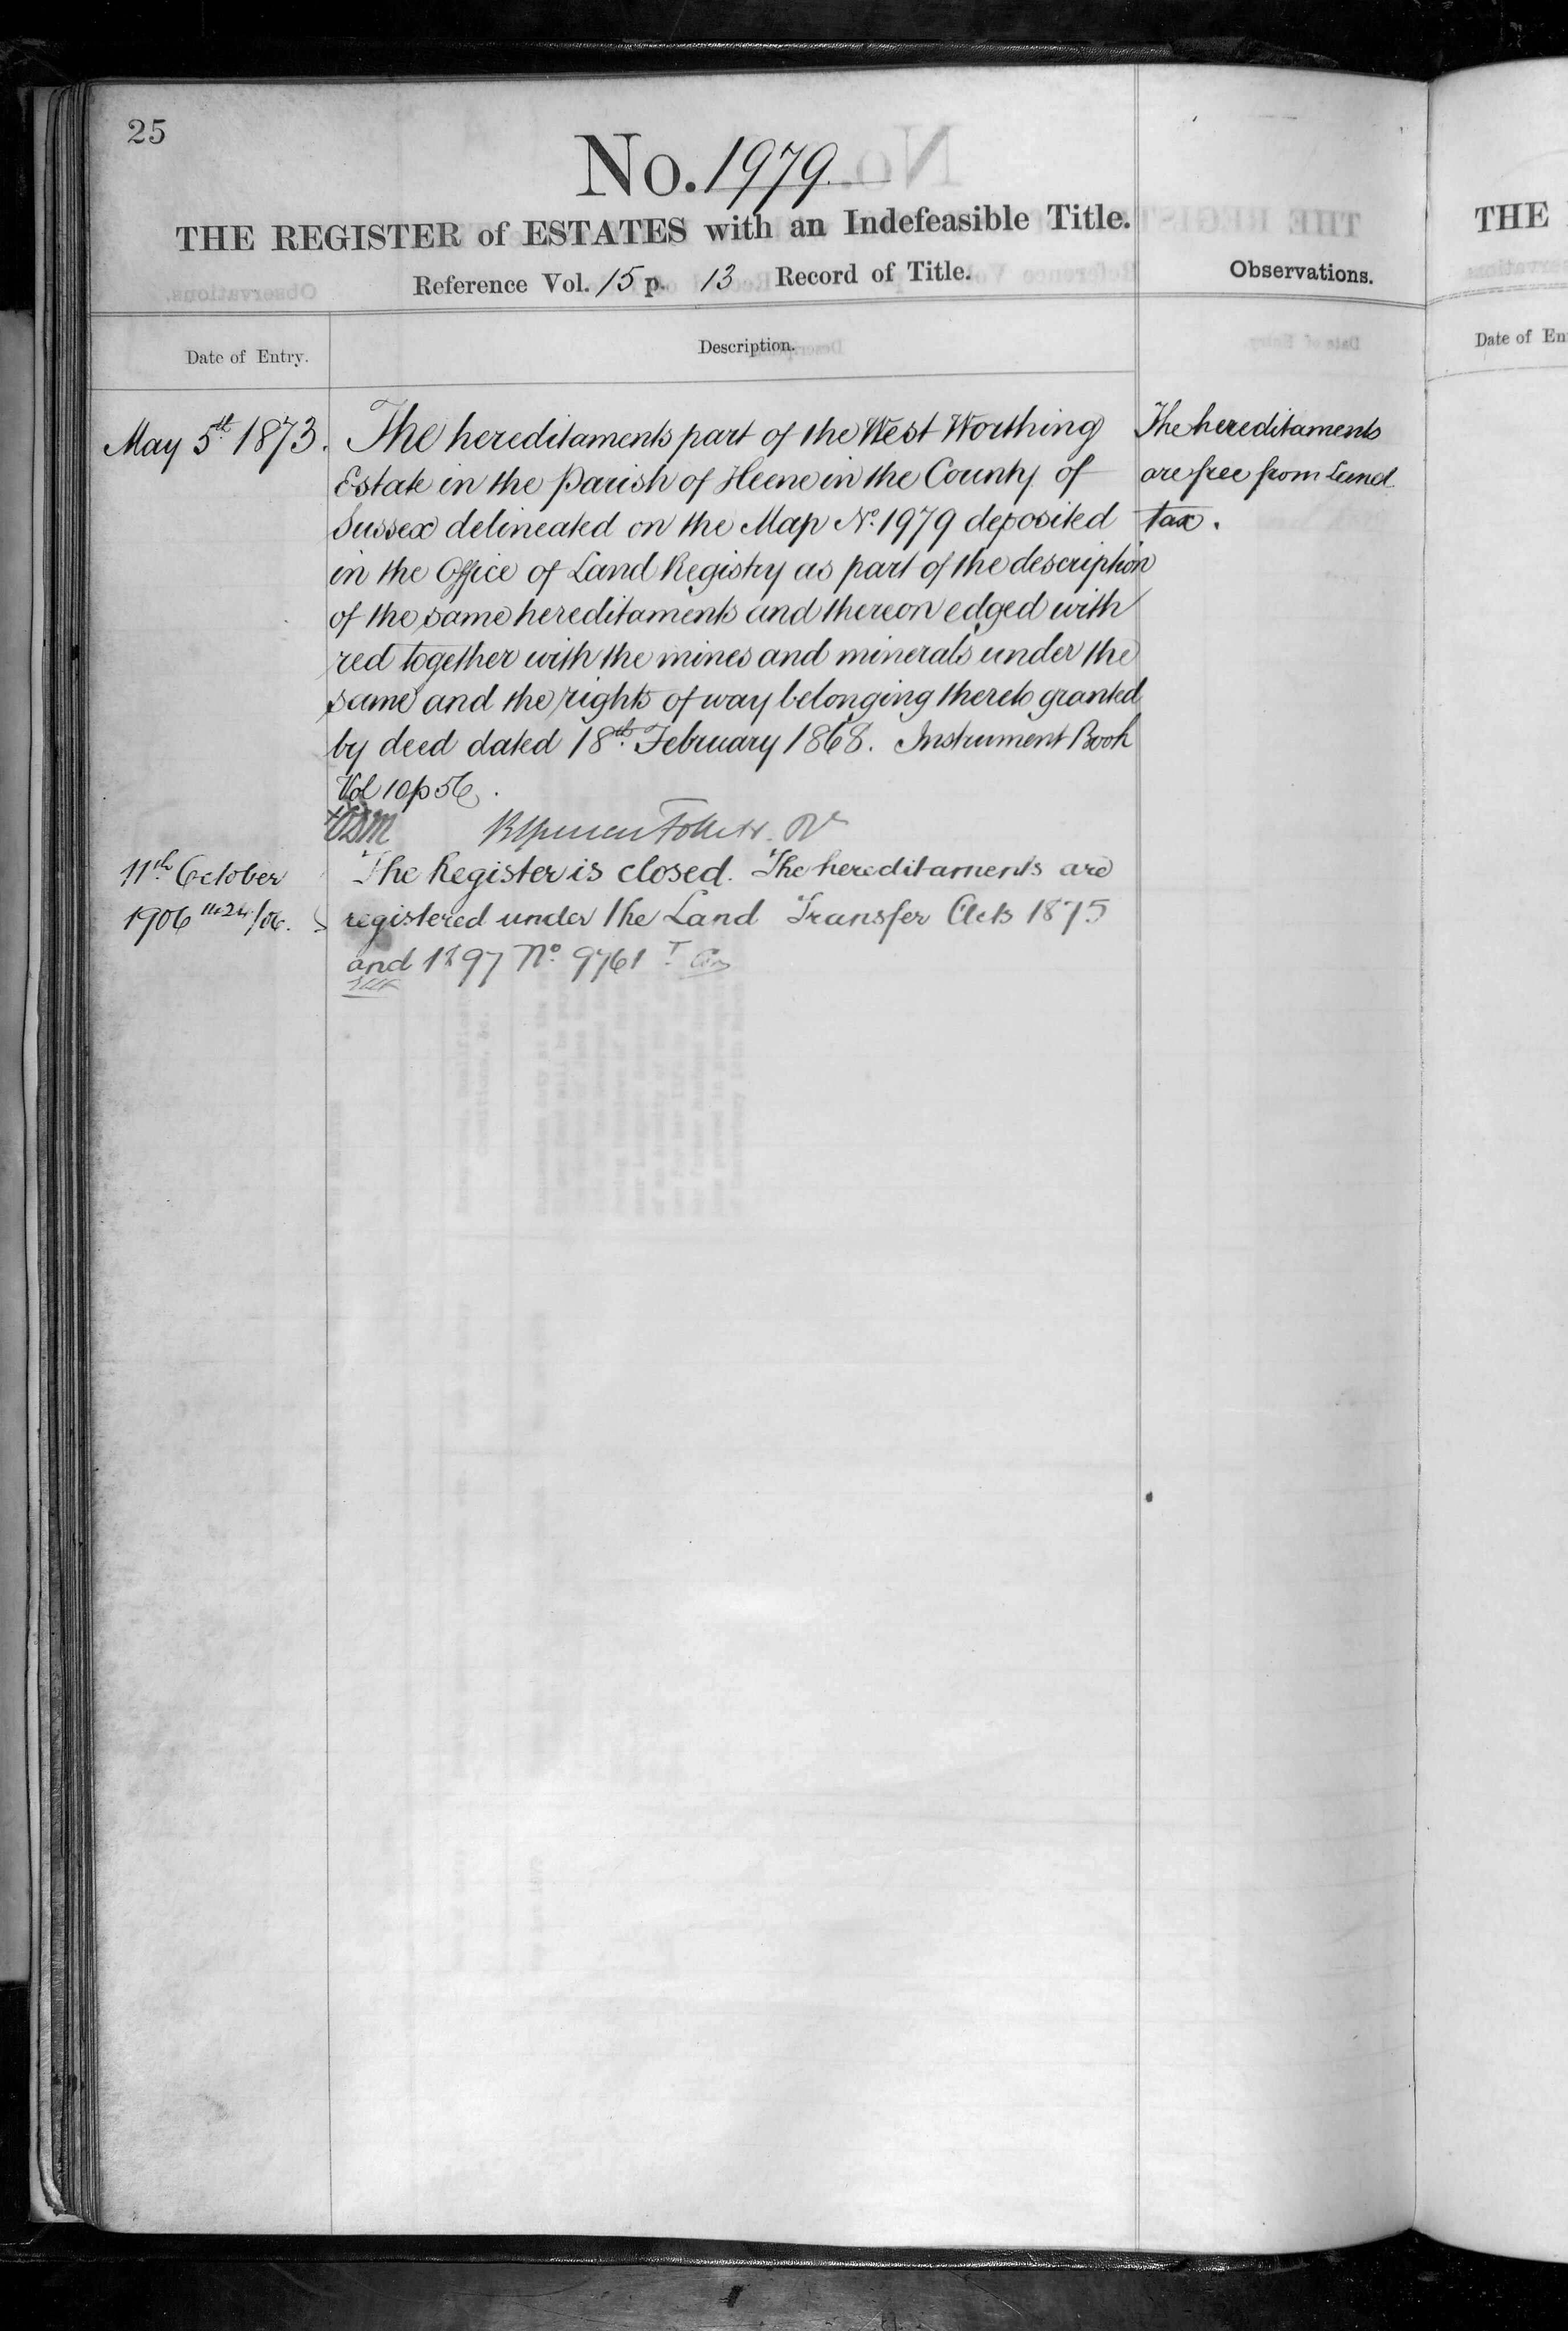 25
No. 1979
THE REGISTER of ESTATES with an Indefeasible Title.
Reference Vol. 15 p. 13 Record of Title.
Observations.
Date of Entry.
Description.
May 5th 1873.
The hereditaments part of the West Worthing
Estate in the Parish of Heene in the County of
Sussex delineated on the Map No. 1979 deposited
in the Office of Land Registry as part of the description
of the same hereditaments and thereon edged with
red together with the mines and minerals under the
same and the rights of way belonging thereto granted
by deed dated 18th February 1868. Instrument Book
Vol 10 p 56.
The hereditaments
are free from Land
tax.
11th October
1906
The Register is closed. The hereditaments are
registered under the Land Transfer Acts 1875
and 1897 No. 9761
THE
Date of En